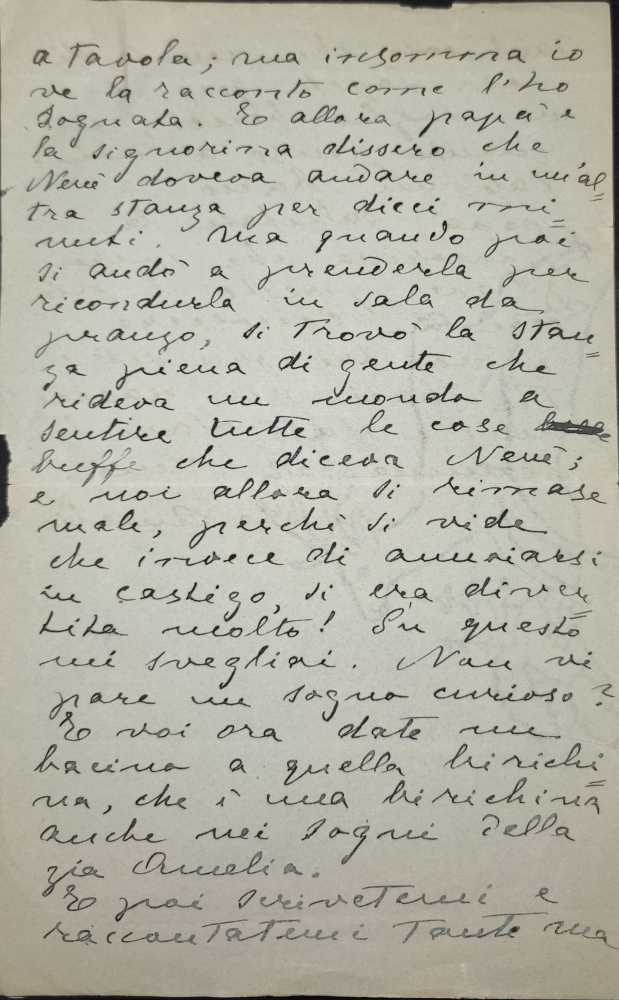 a tavola; ma insomma io
ve la racconto come l'ho
sognata. E allora papà e
la signorina dissero che
Nenè doveva andare in un'al=
tra stanza per dieci mi=
nuti. Ma quando poi
si andò a prenderla per
ricondurla in sala da
pranzo, si trovò la stan=
za piena di gente che
rideva un mondo a
sentire tutte le cose
buffe che diceva Nenè;
e noi allora si rimase
male, perchè si vide
che invece di annoiarsi
in castigo, si era diver=
tita molto! Su questo
mi svegliai. Non vi
pare un sogno curioso?
E voi ora date un
bacino a quella birichi=
na, che è una birichina
anche nei sogni della
zia Amelia.
E poi scrivetemi e
raccontatemi tante ma